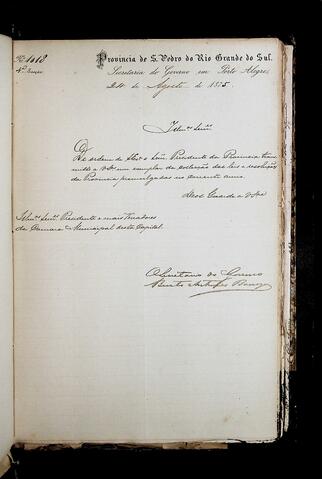 Nº 1018
4ª Secção
Provincia de S. Pedro do Rio Grande do Sul.
Secretaria do Governo em Porto Alegre,
24 de Agosto de 1875.
Illmos Senrs
De ordem do Exmo Senr Presidente da Provincia trans
mitto a VSas um exemplar da collecção das leis e resoluções
da Provincia promulgadas no corrente anno.
Deos Guarde a VSas
Illmos Senrs Presidente e mais Vereadores
da Camara Municipal desta Capital.
O Secretario do Governo